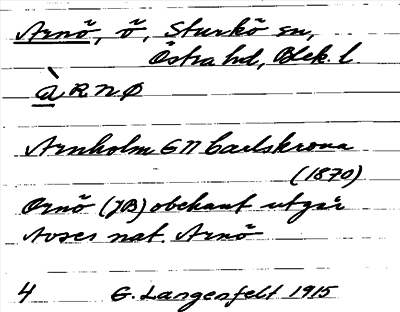 Arnö, ö, Sturkö sn,
Östra hd, Blek. l.
àRNØ
Arnholm GN Carlskrona
(1870)
Ornö (JB) obekant utgår
Avser nat. Arnö
4 G. Langenfelt 1915